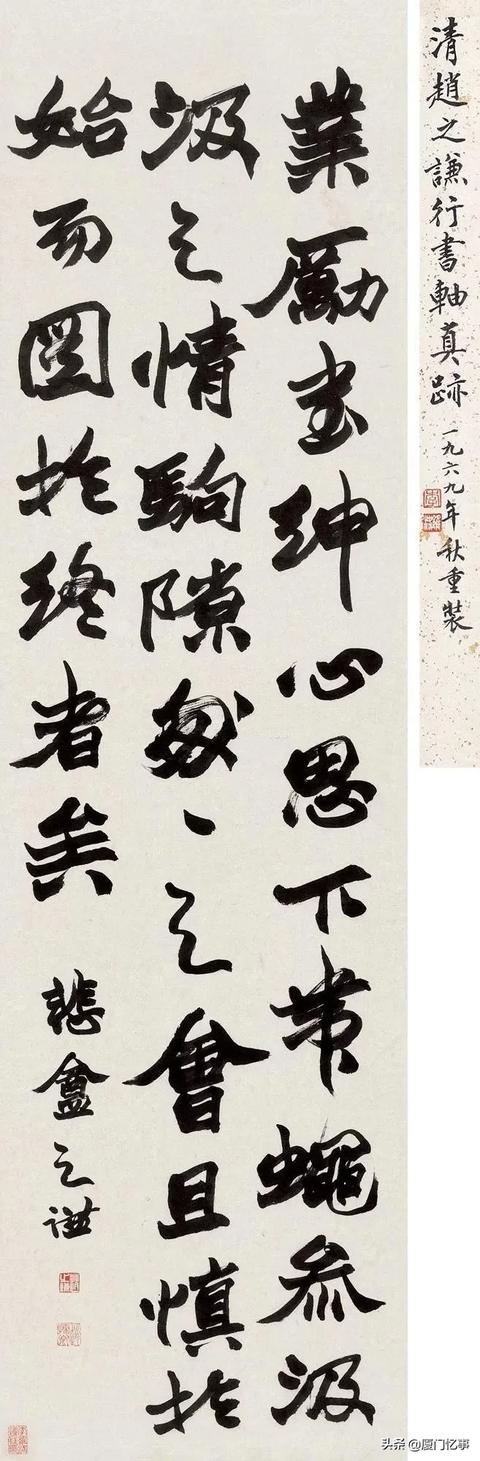 清趙之謙行書軸真跡 一九六九年秋重裝
業勵書紳心思下帶蠅叅汲
汲之情駒隙怱、之會且慎於
始而圖於終者矣
悲盦之謙
头条 @厦门忆事